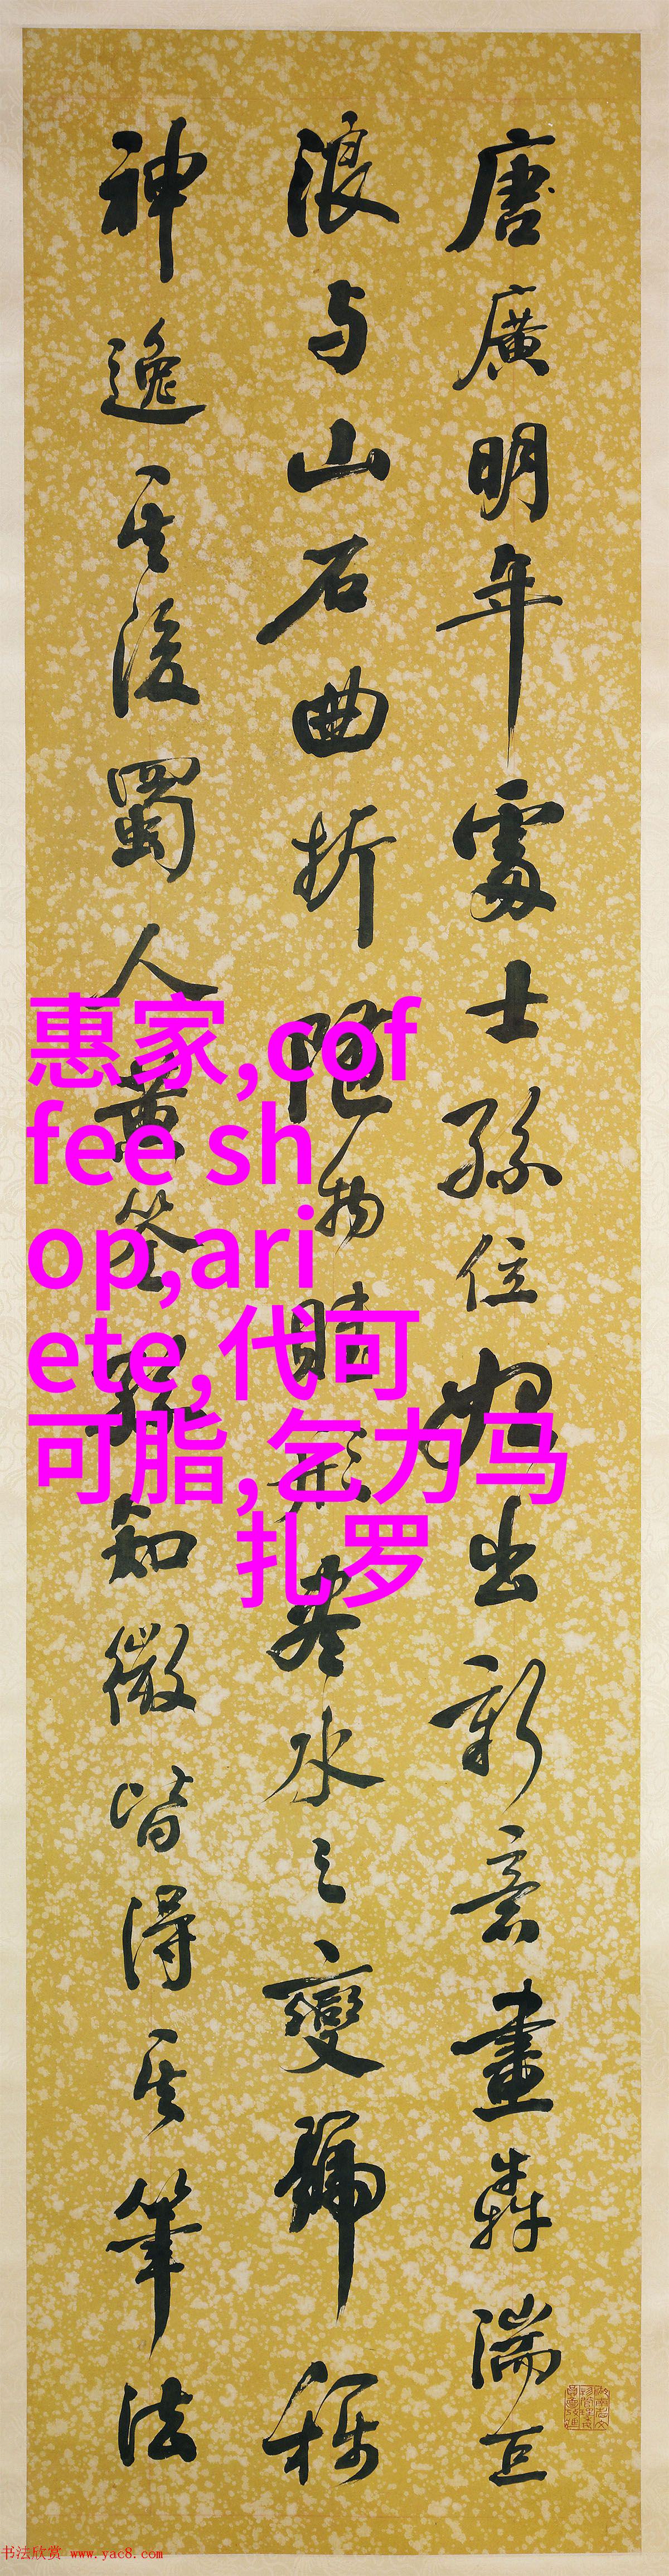 唐廣明年處士孫位始出新意畫奔湍巨
浪与山石曲折隨物賦形盡水之變號稱
神逸其後蜀人黄筌孫知微皆得其筆法
惠家,cof
fee sh
op,ari
ete,代可
可脂,乞力马
扎罗
书法欣赏 www.yac8.com